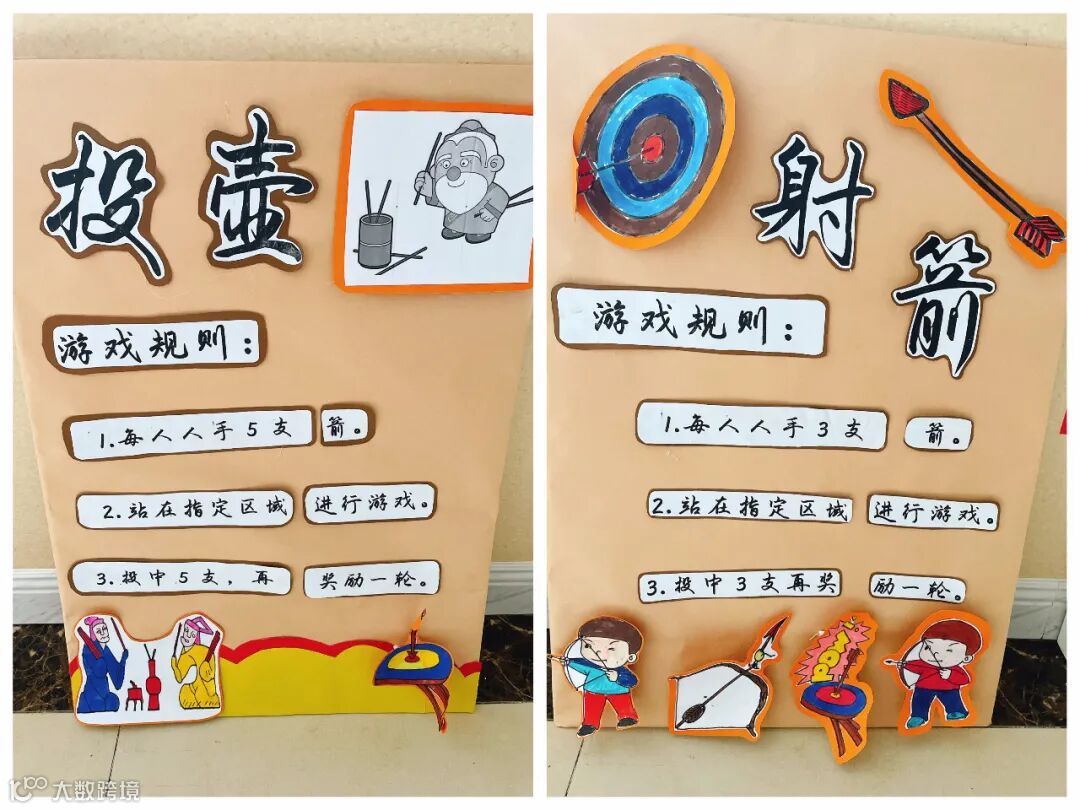 投壶
游戏规则：
1.每人人手5支箭。
2.站在指定区域进行游戏。
3.投中5支，再奖励一轮。
射箭
游戏规则：
1.每人人手3支箭。
2.站在指定区域进行游戏。
3.投中3支再奖励一轮。
大数跨境